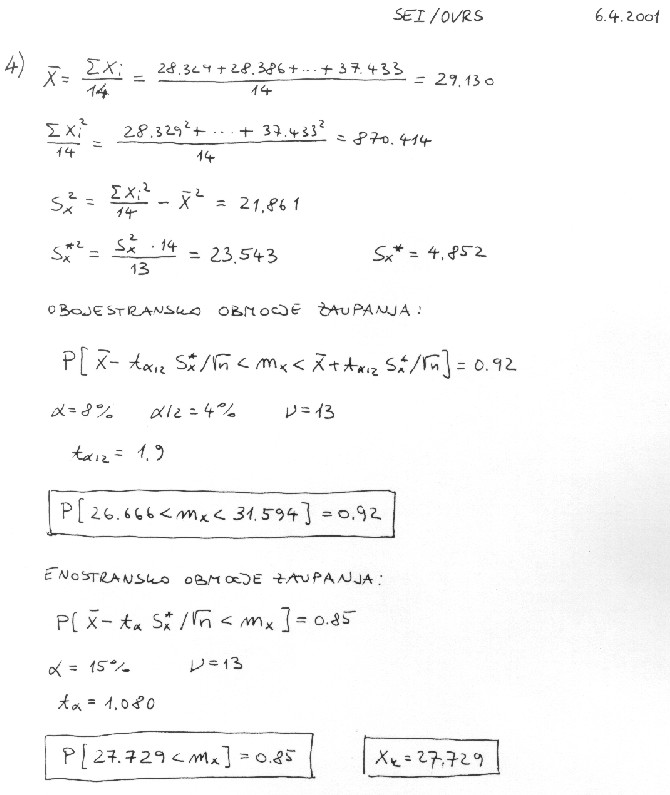 SEI/OVRS 6.4.2001
4) X̄ = ΣXi/14 = (28.329+28.386+⋯+37.433)/14 = 29.130
ΣXi²/14 = (28.329²+ ⋯ + 37.433²)/14 = 870.414
Sx² = ΣXi²/14 − X̄² = 21.861
Sx*² = (Sx² · 14)/13 = 23.543 Sx* = 4.852
OBOJESTRANSKO OBMOČJE ZAUPANJA:
P[X̄ − tα/2 Sx*/√n < mx < X̄ + tα/2 Sx*/√n] = 0.92
α = 8% α/2 = 4% ν = 13
tα/2 = 1.9
P[26.666 < mx < 31.594] = 0.92
ENOSTRANSKO OBMOČJE ZAUPANJA:
P[X̄ − tα Sx*/√n < mx] = 0.85
α = 15% ν = 13
tα = 1.080
P[27.729 < mx] = 0.85 Xk = 27.729